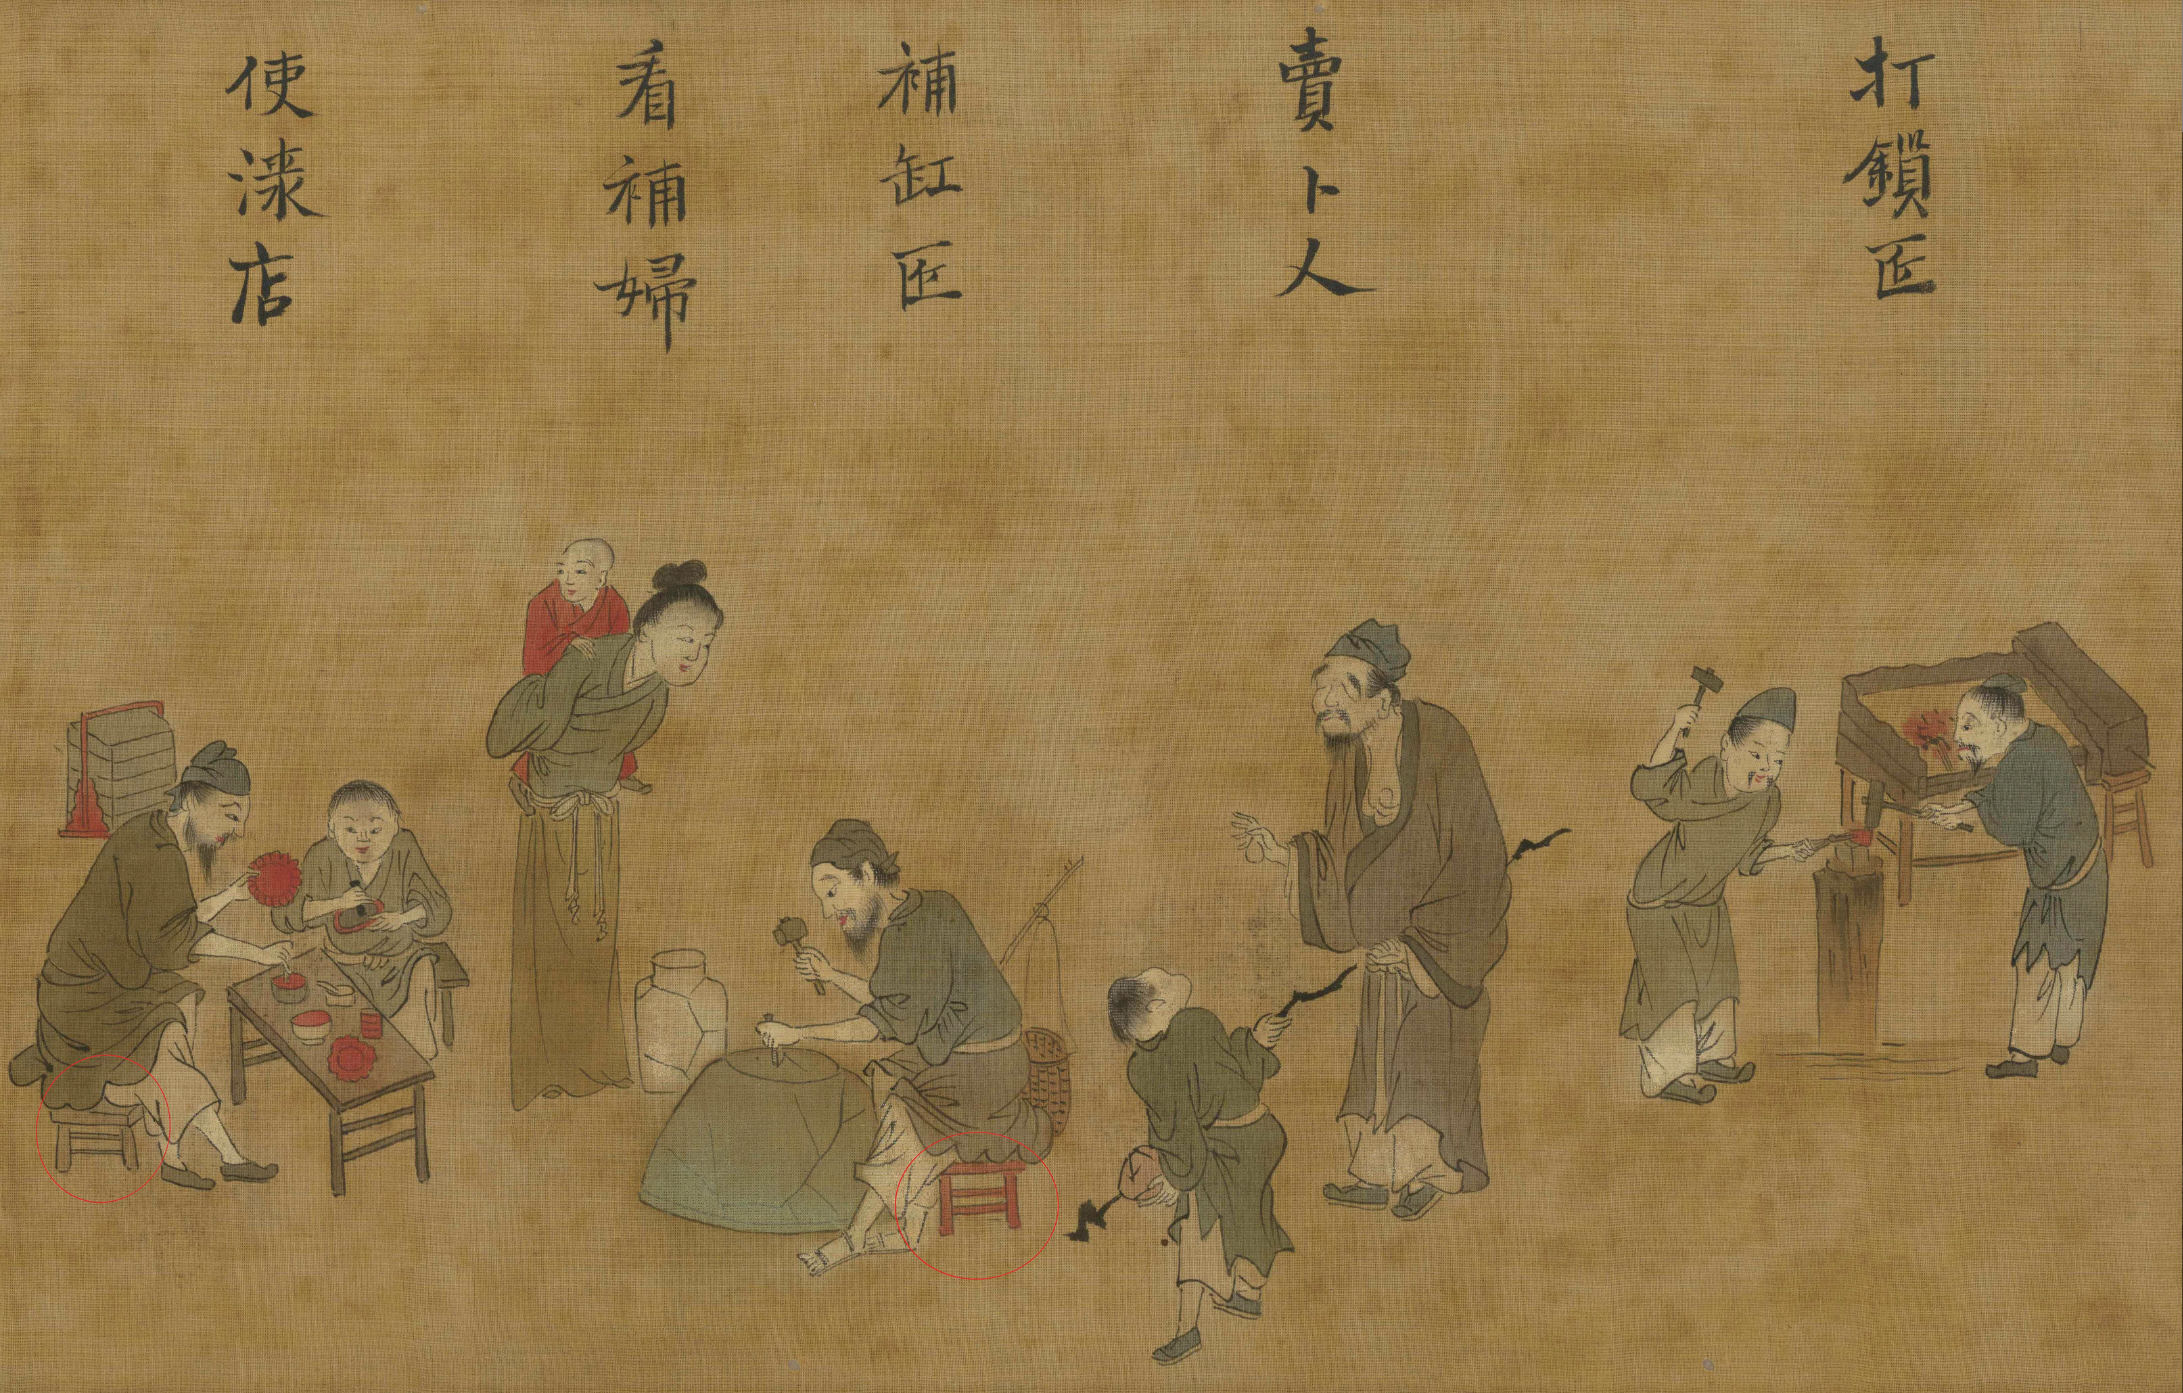 打鎖匠
賣卜人
補缸匠
看補婦
使漆店